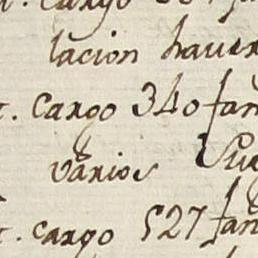 cargo
lacion haver
t. cargo 340 fan
varios
t. cargo 527 fan